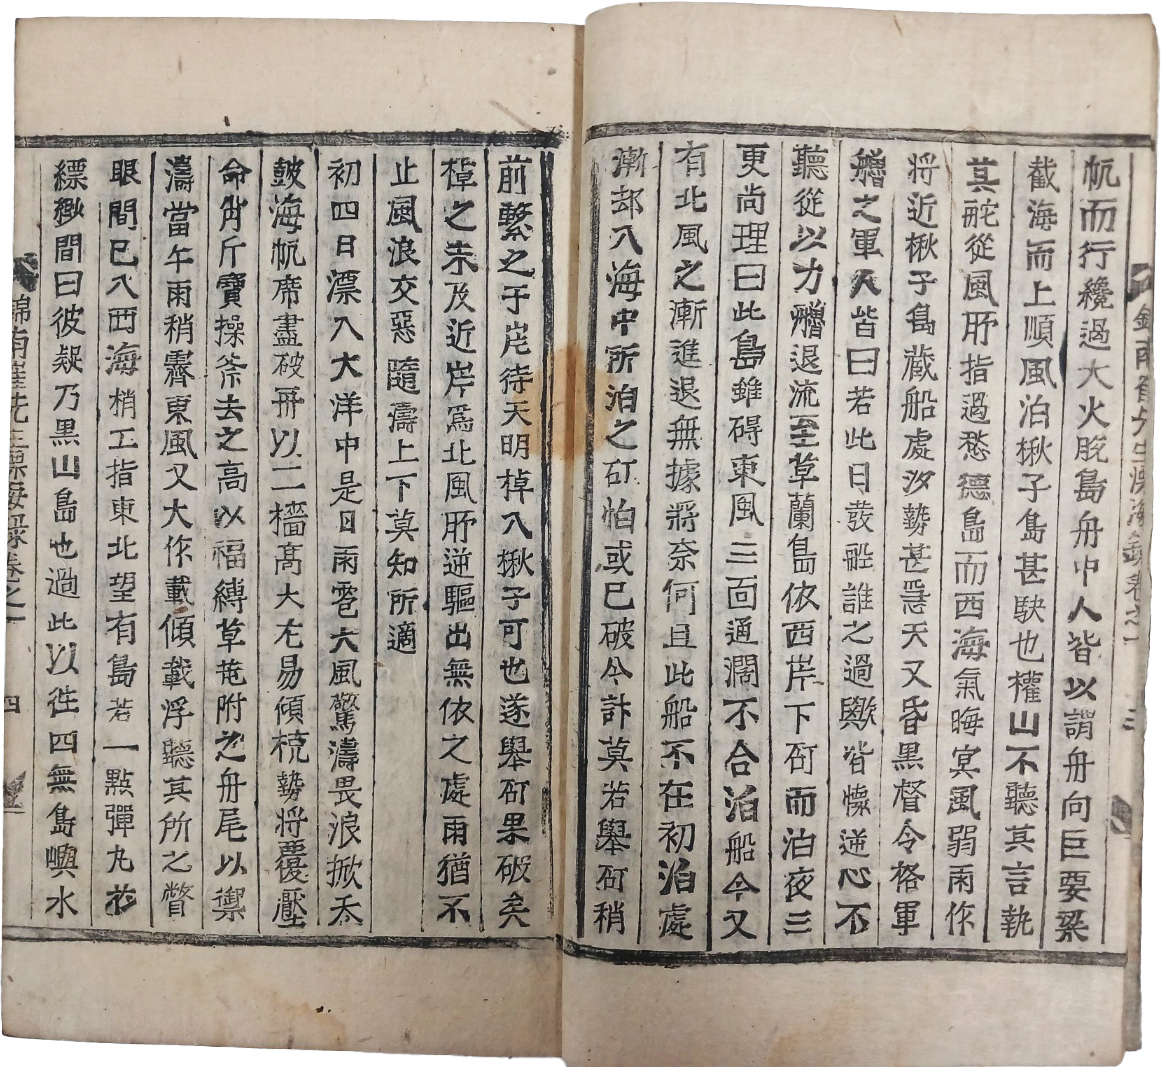 帆而行纔過大火脫島舟中人皆以謂舟向巨要梁
截海而上順風泊楸子島甚駛也權山不聽其言執
其舵從風所指過愁德島而西海氣晦冥風弱雨作
將近楸子島藏船處汐勢甚急天又昏黑督令格軍
艪之軍人皆曰若此日發船誰之過歟皆懷逆心不
聽從以力艪退流至草蘭島依西岸下矴而泊夜三
更尚理曰此島雖碍東風三面通濶不合泊船今又
有北風之漸進退無據將奈何且此船不在初泊處
漸却入海中所泊之矴怕或已破今計莫若擧矴稍
前繫之于岸待天明棹入楸子可也遂擧矴果破矣
棹之未及近岸爲北風所逆驅出無依之處雨猶不
止風浪交惡隨濤上下莫知所適
初四日漂入大洋中是日雨雹大風驚濤畏浪掀天
皷海帆席盡破舟以二檣高大尤易傾梲勢將覆壓
命肖斤寶操斧去之高以福縛草芚附之舟尾以禦
濤當午雨稍霽東風又大作載傾載浮聽其所之瞥
眼間已入西海梢工指東北望有島若一點彈丸於
縹緲間曰彼疑乃黑山島也過此以徃四無島嶼水
錦南崔先生漂海錄卷之一 四